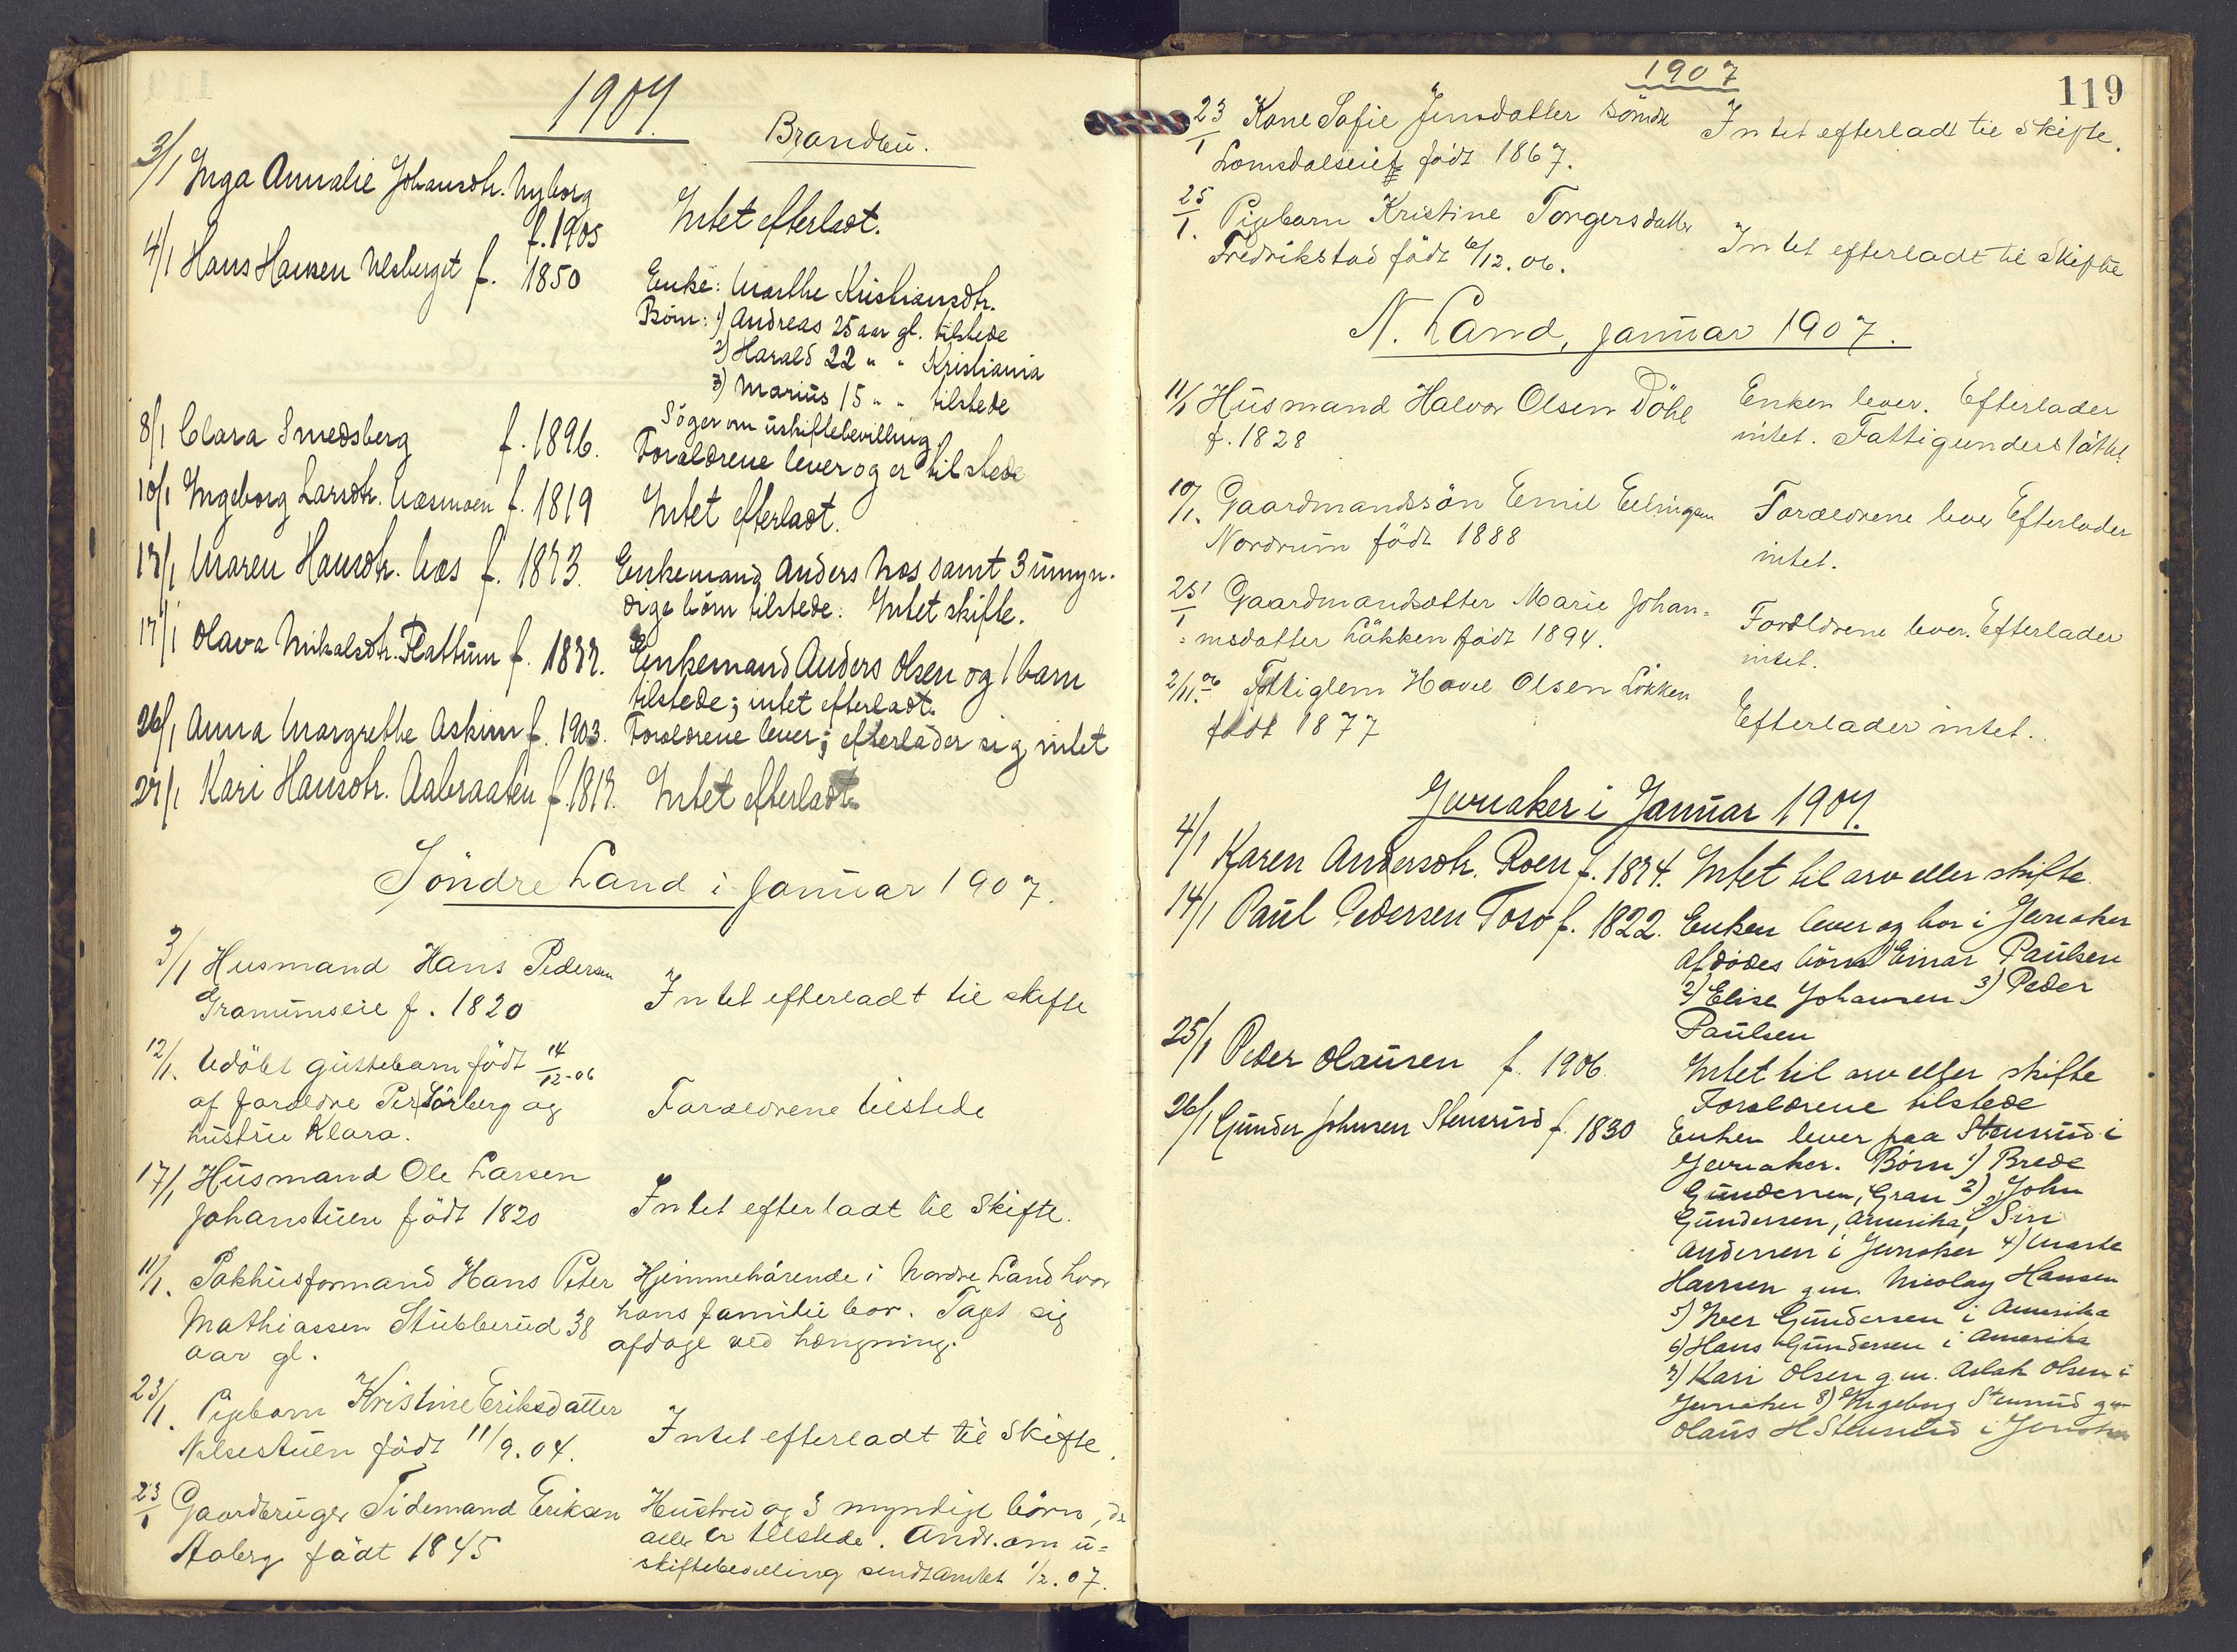 1907.
Brandbu.
3/1 Inga Annalie Johansdtr. Nyborg
f. 1905
Intet efterladt.
4/1 Hans Hansen f. 1850
Enke: Marthe Kristiansdtr.
Börn: 1) Andreas 25 aar gl. tilstede
2) Harald 22 " " Kristiania
3) Marius 15 " " tilstede
Söger om uskiftebevilling.
8/1 Clara Smedsberg f. 1896.
Forældrene lever og er tilstede
10/1 Ingeborg Larsdtr. f. 1819
Intet efterladt.
17/1 Maren Hansdtr. f. 1873.
Enkemand Anders samt 3 umyn-
dige börn tilstede. Intet skifte.
17/1 Olava Mikalsdtr. Flattum f. 1877.
Enkemand Anders Olsen og 1 barn
tilstede; intet efterladt.
26/1 Anna Margrethe Askim f. 1903.
Forældrene lever; efterlader sig intet
27/1 Kari Hansdtr. Aabraaten f. 1817.
Intet efterladt.
Söndre Land i Januar 1907.
3/1 Husmand Hans Pedersen
Granumseie f. 1820
Intet efterladt til skifte
12/1. Udöbt guttebarn födt 14/12-06
af forældre Per Sörberg og
hustru Klara.
Forældrene tilstede
17/1 Husmand Ole Larsen
Johanstuen födt 1820
Intet efterladt til Skifte.
11/1. Pakhusformand Hans Peter
Mathiassen Stubberud 38
aar gl.
Hjemmehörende i Nordre Land hvor
hans familie bor. Taget sig
afdage ved hængning.
23/1. Pigebarn Kristine Eriksdatter
Nilsestuen födt 11/9.04.
Intet efterladt til Skifte.
23/1 Gaardbruger Tidemand Eriksen
Aaberg födt 1845
Hustru og 3 myndige börn, de
alle er tilstede. Andr. om u-
skiftebevilling sendt amtet 1/2.07.
1907
119
23/1 Kone Sofie Jensdatter söndr
Lomsdalseie födt 1867.
Intet efterladt til Skifte.
25/1. Pigebarn Kristine Torgersdatter
Fredrikstad födt 6/12.06.
Intet efterladt til Skifte
N. Land, januar 1907.
11/1 Husmand Halvor Olsen Döhl
f. 1828
Enken lever. Efterlader
intet. Fattigunderstöttet.
10/1. Gaardmandssön Emil Ellingsen
Nordrum födt 1888
Forældrene lever Efterlader
intet.
25/1 Gaardmandsdatter Marie Johan=
=nsdatter Lökken födt 1894.
Forældrene lever. Efterlader
intet.
2/11.06 Fattiglem Hovel Olsen Lökken
födt 1877
Efterlader intet.
Jevnaker i Januar 1907.
4/1 Karen Andersdtr. Roen f. 1874.
Intet til arv eller skifte.
14/1 Paul Pedersen Toso f. 1822.
Enken lever og bor i Jevnaker
Afdödes börn 1) Einar Paulsen
2) Elise Johansen 3) Peder
Paulsen
25/1 Peder Olausen f. 1906
Intet til arv eller skifte
Forældrene tilstede
26/1 Gunder Johnsen Stensrud f. 1830
Enken lever paa Stensrud i
Jevnaker. Börn 1) Brede
Gundersen, Gran 2) John
Gundersen, Amerika, 3) Siri
Andersen i Jevnaker 4) Marte
Hansen gm. Nicolay Hansen
5) Iver Gundersen i Amerika
6) Hans Gundersen i Amerika
7) Kari Olsen g.m. Aslak Olsen i
Jevnaker 8) Ingeborg Stensrud gm
Olaus H Stensrud i Jevnaker